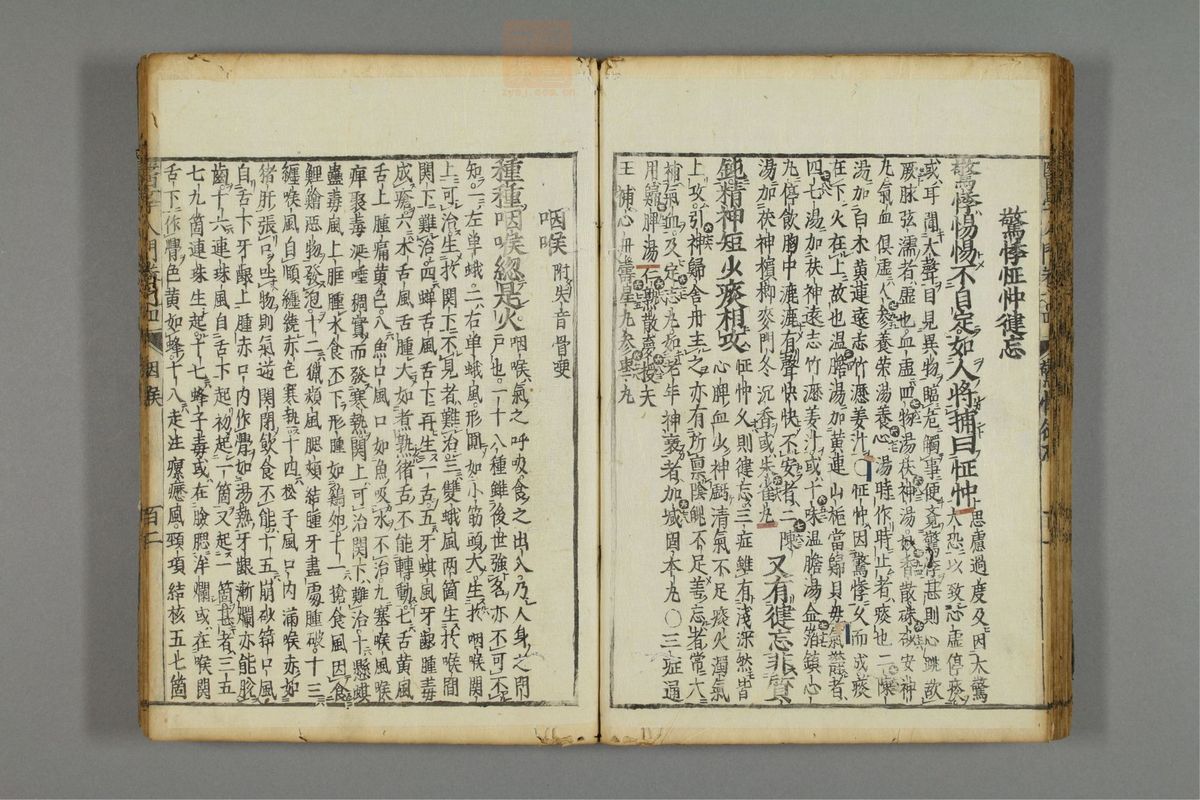 驚悸怔忡健忘
驚悸惕惕不自定如人將捕曰怔忡思慮過度及因大驚大恐以致心虛停痰
或耳聞大聲目見異物臨危觸事便覺驚悸甚則心跳欲
厥脉弦濡者虛也血虛四物湯茯神湯妙香散硃砂安神
丸氣血俱虛人參養榮湯養心湯時作時止者痰也二陳
湯加白朮黃連遠志竹瀝姜汁〇怔忡因驚悸久而成痰
在下火在上故也溫膽湯加黃連山梔當歸貝母氣鬱者
四七湯加茯神遠志竹瀝姜汁或十味溫膽湯金箔鎮心
丸停飲胸中漉漉有聲怏怏不安者二陳
湯加茯神檳榔麥門冬沉香或朱雀丸又有健忘非質
鈍精神短少痰相攻怔忡久則健忘三症雖有淺深然皆心脾血少神虧清氣不足痰火濁氣
上攻引神歸舍丹主之亦有所稟陰魄不足善忘者當大
補氣血及定志丸如老年神衰者加減固本丸〇三症通
用歸脾湯仁熟散壽星丸參棗丸
王補心丹
咽喉 附失音骨哽
種種咽喉總是火咽喉氣之呼吸食之出入乃人身之門戶也一十八種雖後世強名亦不可不
知一左單蛾二右單蛾風形圓如小筋頭大生於咽喉關
上可治生於關下不見者難治三雙蛾風兩箇生於喉間
關下難治四蟬舌風舌下再生一舌五牙蜞風牙齦腫毒
成瘡六木舌風舌腫大如煮熟猪舌不能轉動七舌黃風
舌上腫痛黃色八魚口風口如魚吸水不治九塞喉風喉
痺聚毒涎唾稠實而發寒熱關上可治關下難治十懸蜞
蠱毒風上腭腫水食不下形腫如鷄卵十一搶食風因食
鯉鱠惡物發泡十二獵頰風腮頰結腫牙盡處腫破十三
纏喉風自頤纏繞赤色寒熱十四松子風口內滿喉赤如
猪肝張口吐物則氣逆關閉飲食不能十五崩砂病口風
自舌下牙齦上腫赤口內作瘡如湯熱牙齦漸爛亦能脫
齒十六連珠風自舌下起初起一箇又起一箇甚者三五
七九箇連珠生起十七蜂子毒或在臉腮洋爛或在喉關
舌下作瘡色黃如蜂十八走注瘰癧風頸項結核五七箇
百二